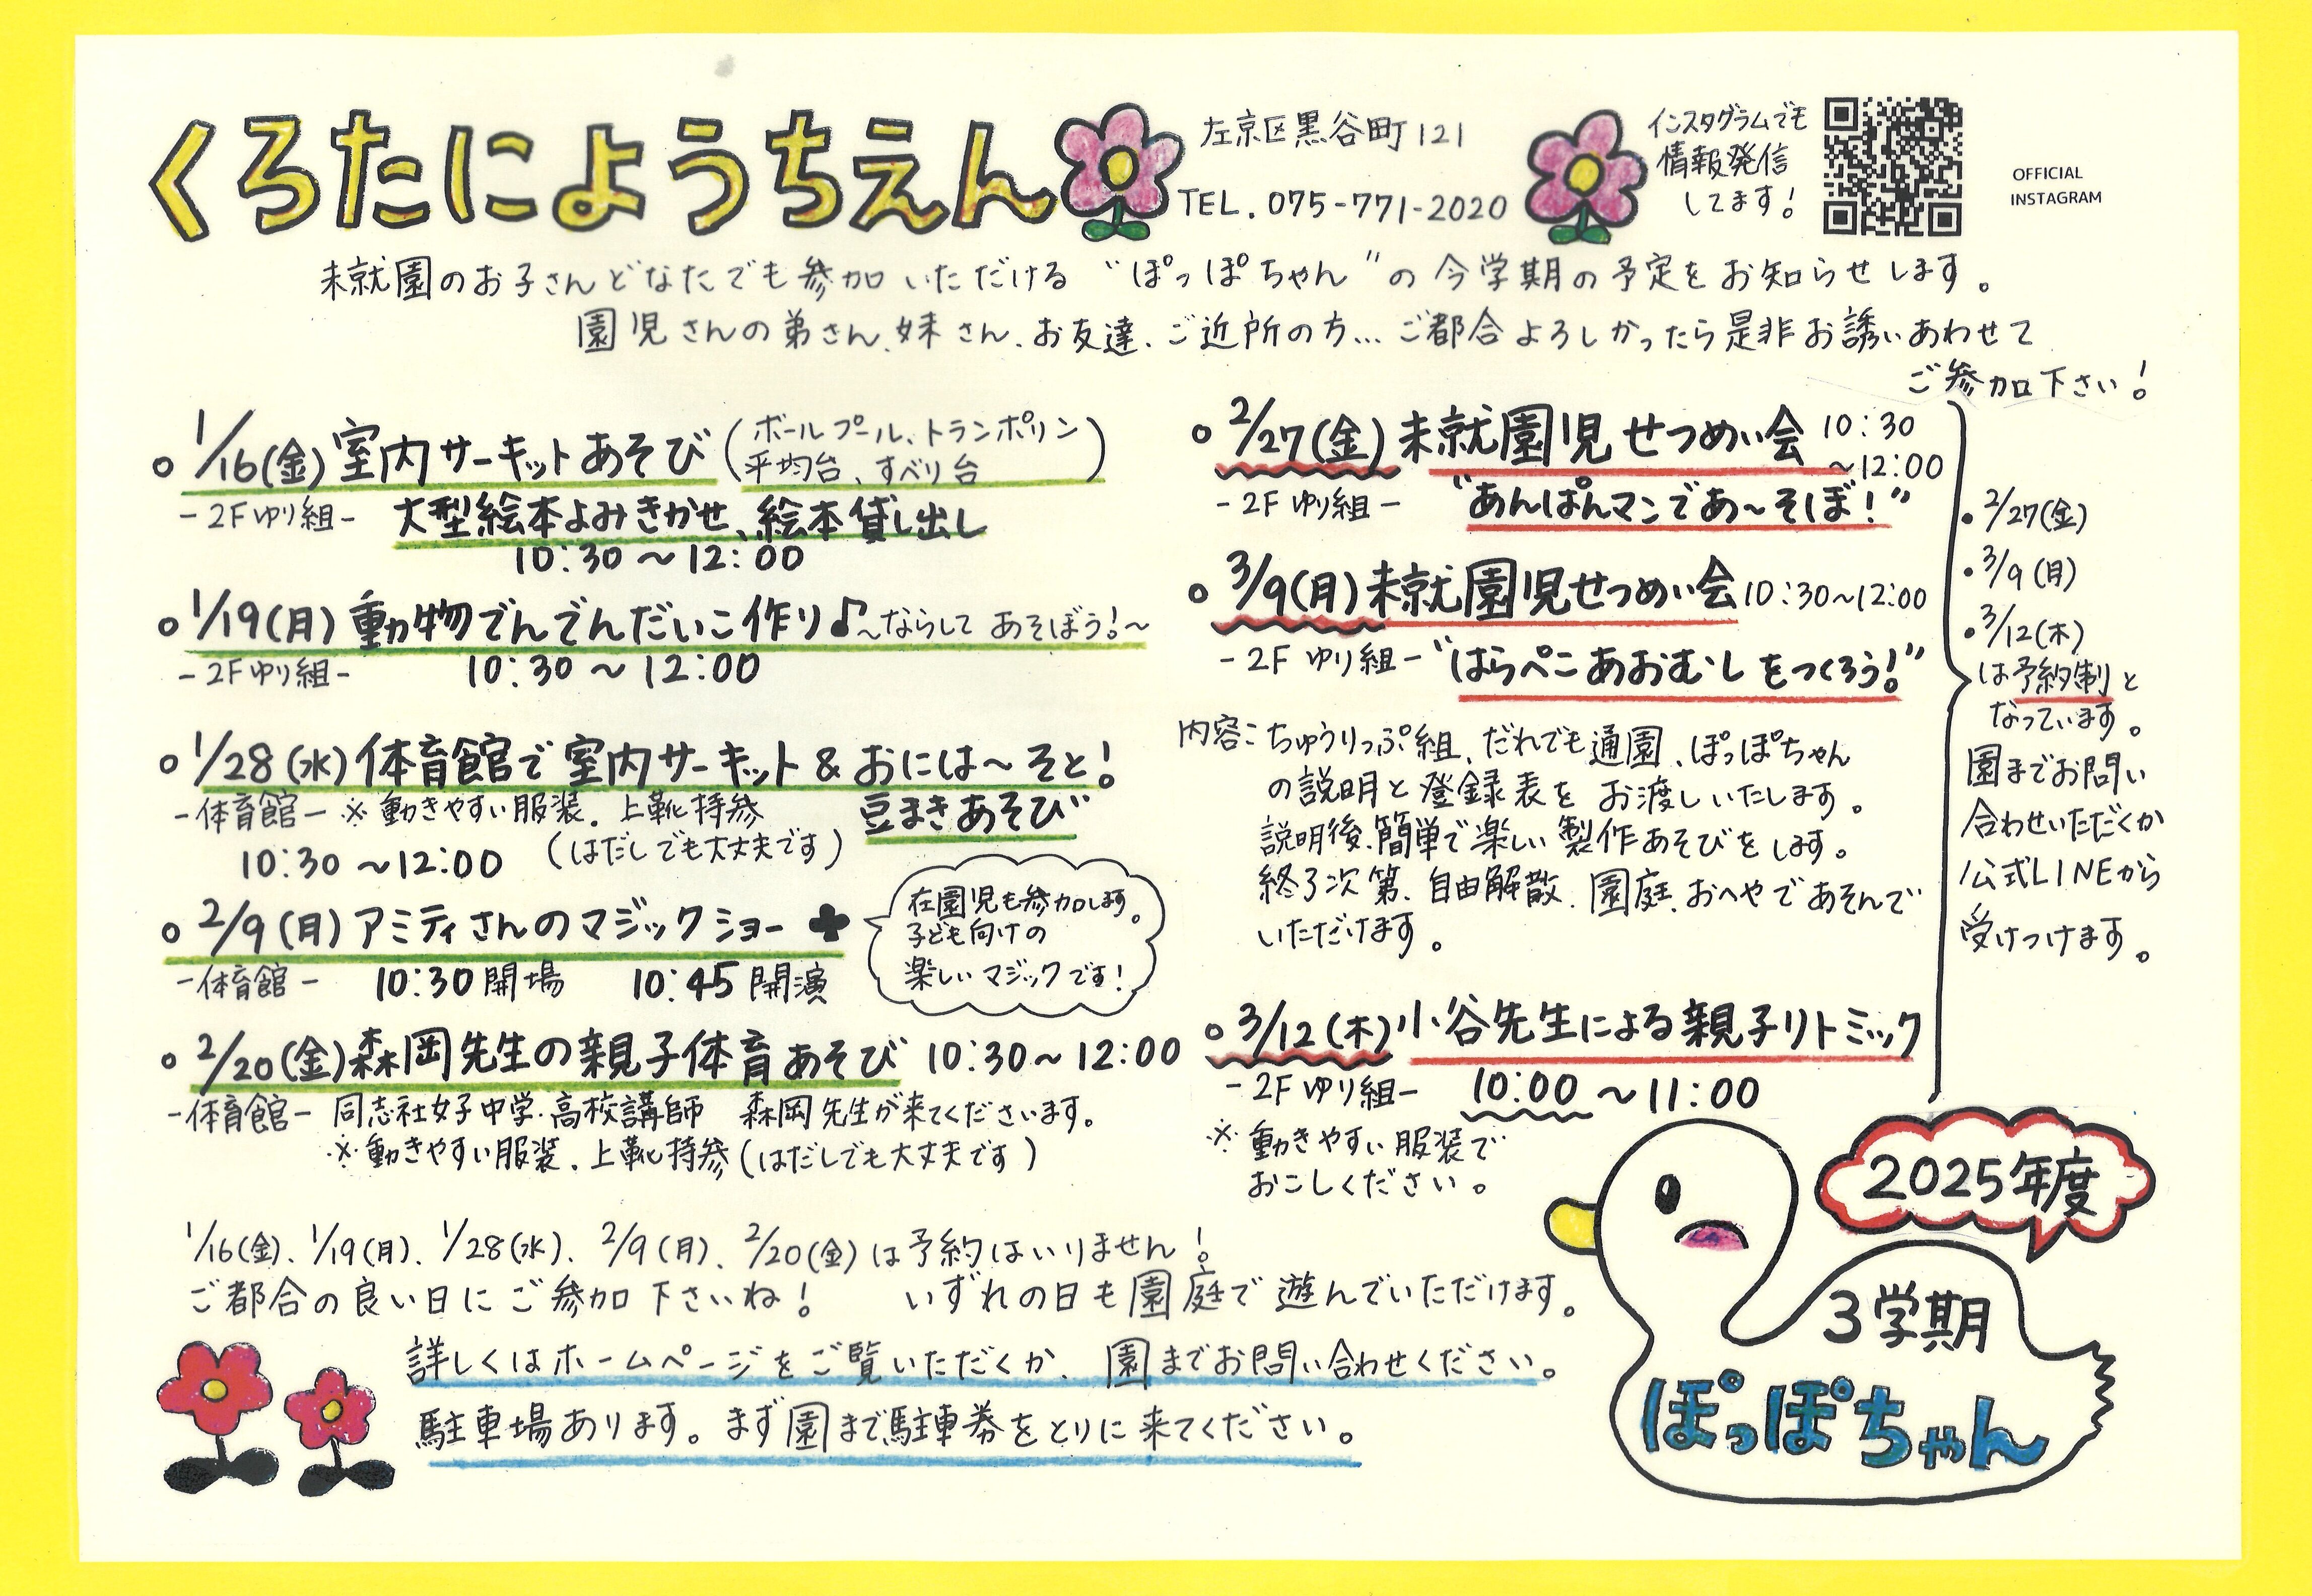 くろたにようちえん
左京区黒谷町121
TEL. 075-771-2020
インスタグラムでも
情報発信
してます!
OFFICIAL
INSTAGRAM
未就園のお子さんどなたでも参加いただける“ぽっぽちゃん”の今学期の予定をお知らせします。
園児さんの弟さん、妹さん、お友達、ご近所の方…ご都合よろしかったら是非お誘いあわせて
ご参加下さい!
○1/16(金)室内サーキットあそび(ボールプール、トランポリン
平均台、すべり台)
-2Fゆり組- 大型絵本よみきかせ、絵本貸し出し
10:30〜12:00
○1/19(月)動物でんでんだいこ作り♪〜ならして あそぼう!〜
-2Fゆり組- 10:30〜12:00
○1/28(水)体育館で室内サーキット&おには〜そと!
-体育館-※動きやすい服装.上靴持参 豆まきあそび
10:30〜12:00 (はだしでも大丈夫です)
○2/9(月)アミティさんのマジックショー♣
-体育館- 10:30開場 10:45開演
在園児も参加します。
子ども向けの
楽しいマジックです!
○2/20(金)森岡先生の親子体育あそび 10:30〜12:00
-体育館- 同志社女子中学・高校講師 森岡先生が来てくださいます。
※動きやすい服装.上靴持参(はだしでも大丈夫です)
○2/27(金)未就園児せつめい会 10:30
〜12:00
-2Fゆり組- “あんぱんマンであ〜そぼ!”
○3/9(月)未就園児せつめい会10:30〜12:00
-2Fゆり組-“はらぺこあおむしをつくろう!”
内容:ちゅうりっぷ組、だれでも通園、ぽっぽちゃん
の説明と登録表をお渡しいたします。
説明後、簡単で楽しい製作あそびをします。
終了次第、自由解散.園庭、おへやであそんで
いただけます。
○3/12(木)小谷先生による親子リトミック
-2Fゆり組- 10:00〜11:00
※動きやすい服装で
おこしください。
・2/27(金)
・3/9(月)
・3/12(木)
は予約制と
なっています。
園までお問い
合わせいただくか
公式LINEから
受けつけます。
1/16(金)、1/19(月)、1/28(水)、2/9(月)、2/20(金)は予約はいりません!
ご都合の良い日にご参加下さいね! いずれの日も園庭で遊んでいただけます。
詳しくはホームページをご覧いただくか、園までお問い合わせください。
駐車場あります。まず園まで駐車券をとりに来てください。
2025年度
3学期
ぽっぽちゃん